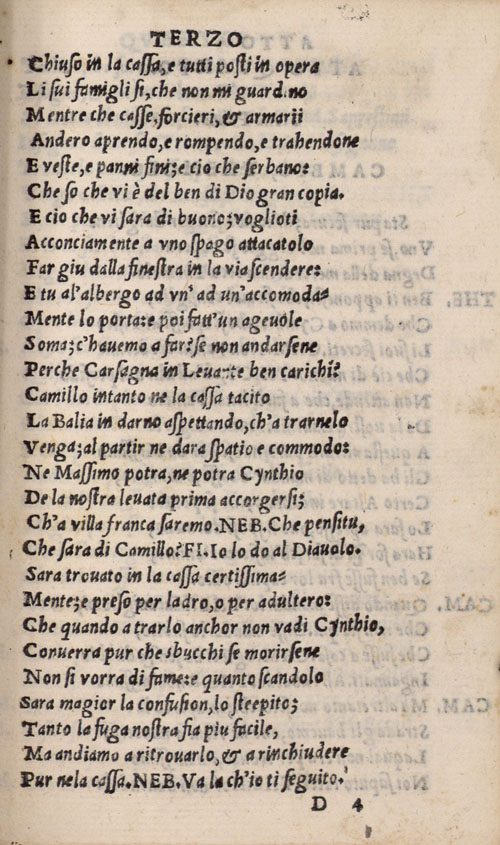 TERZO
Chiuso in la cassa, e tutti posti in opera
Li sui famigli si, che non mi guard.no
Mentre che casse, forcieri, & armarii
Andero aprendo, e rompendo, e trahendone
E veste, e panni fini; e cio che serbano:
Che so che vi è del ben di Dio gran copia.
E cio che vi sara di buono; voglioti
Acconciamente a vno spago attacatolo
Far giu dalla finestra in la via scendere:
E tu al'albergo ad vn' ad un'accomoda=
Mente lo porta: e poi fatt'un ageuole
Soma; c'hauemo a far? se non andarsene
Perche Carsagna in Leuante ben carichi?
Camillo intanto ne la cassa tacito
La Balia in darno aspettando, ch'a trarnelo
Venga; al partir ne dara spatio e commodo:
Ne Massimo potra, ne potra Cynthio
De la nostra leuata prima accorgersi;
Ch'a villa franca saremo. NEB. Che pensitu,
Che sara di Camillo? FI. Io lo do al Diauolo.
Sara trouato in la cassa certissima=
Mente; e preso per ladro, o per adultero:
Che quando a trarlo anchor non vadi Cynthio,
Conuerra pur che sbucchi se morirsene
Non si vorra di fame: e quanto scandolo
Sara magior la confusion, lo steepito;
Tanto la fuga nostra fia piu facile,
Ma andiamo a ritrouarlo, & a rinchiudere
Pur nela cassa. NEB. Va la ch'io ti seguito.
D 4